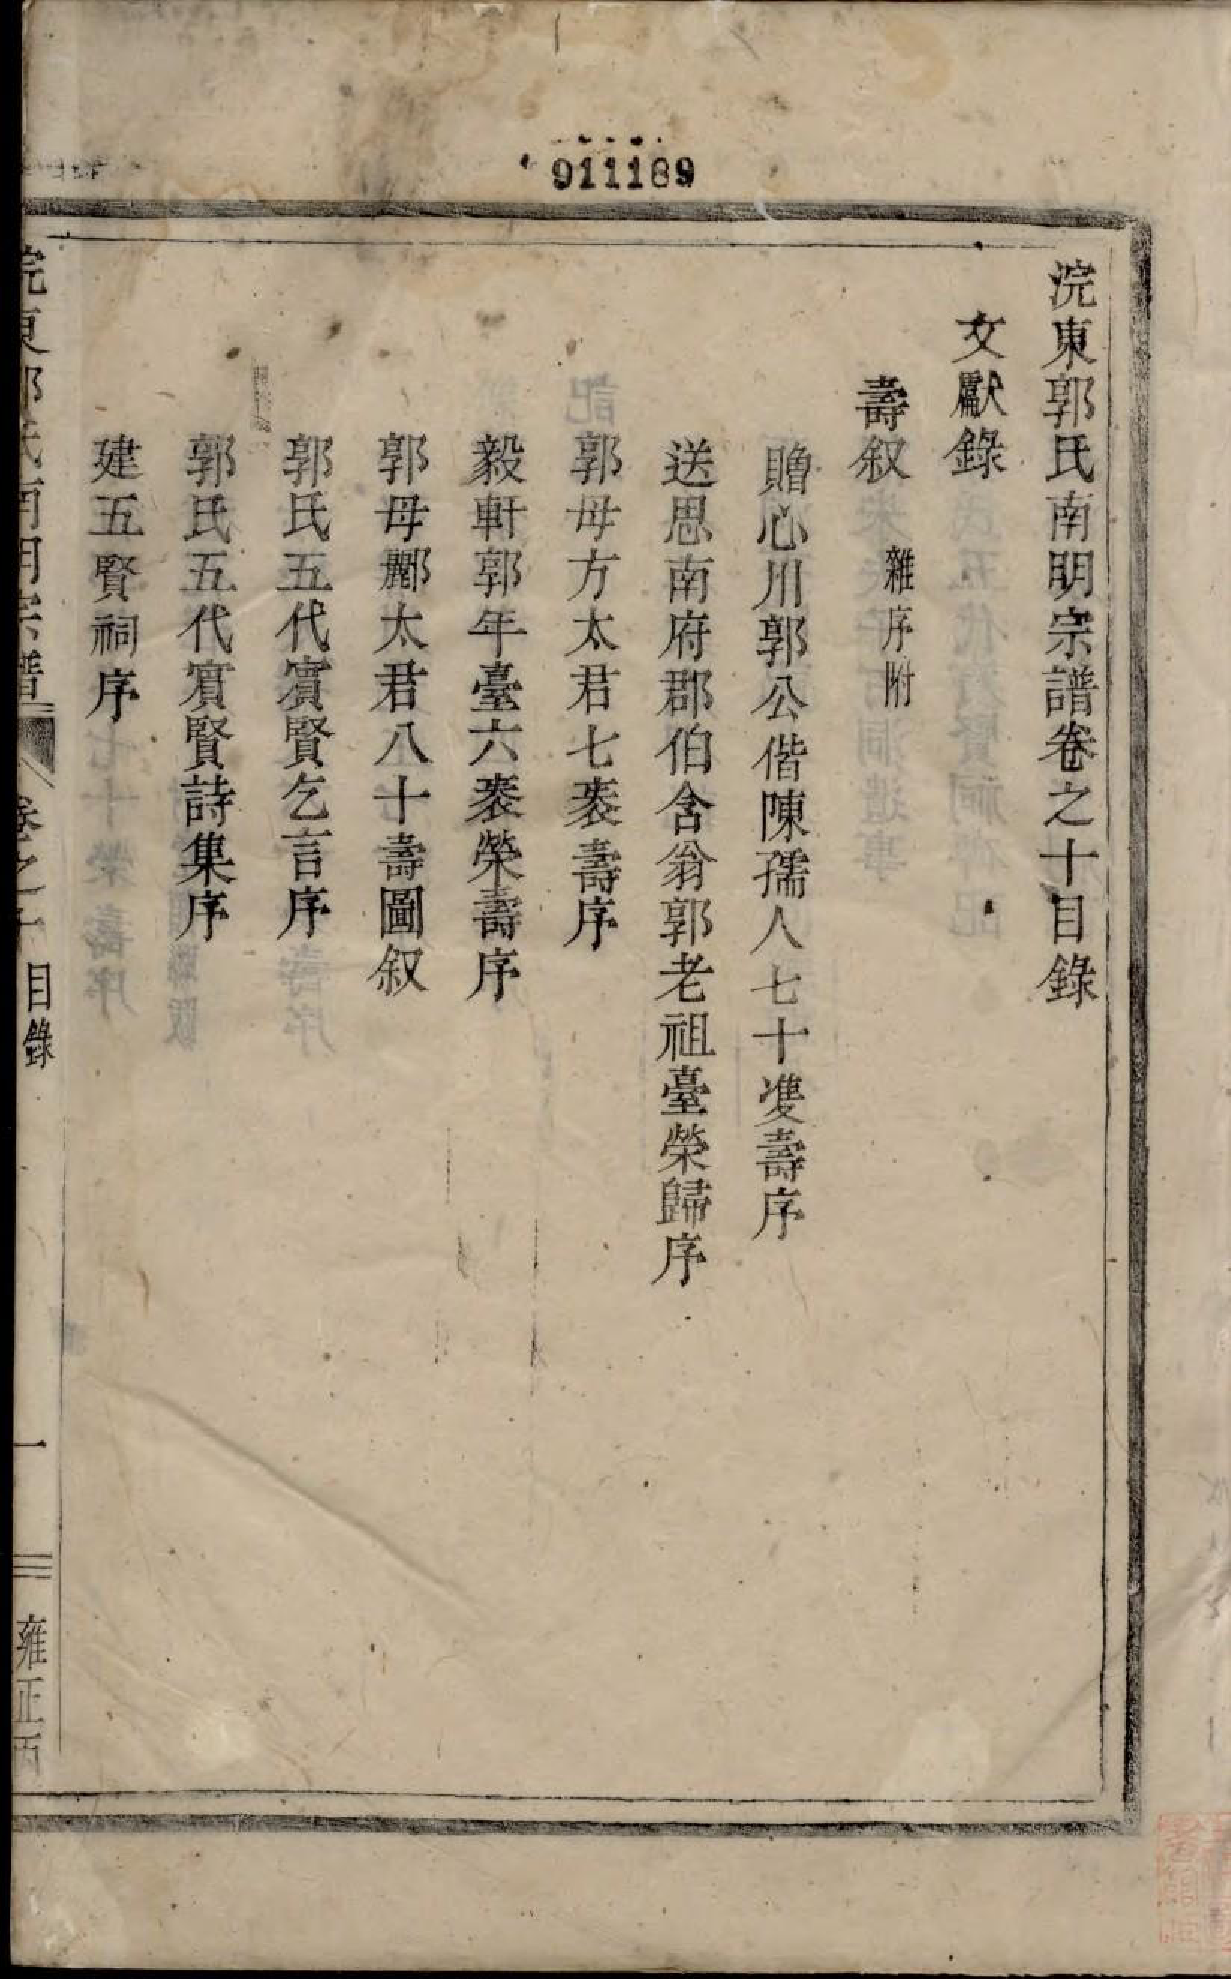 911189
浣東郭氏南明宗譜卷之十目錄
文獻錄
壽叙 雜序附
贈心川郭公偕陳孺人七十雙壽序
送思南府郡伯含翁郭老祖臺榮歸序
郭母方太君七袠壽序
毅軒郭年臺六袠榮壽序
郭母酈太君八十壽圖叙
郭氏五代賔賢乞言序
郭氏五代賔賢詩集序
建五賢祠序
浣東郭氏南明宗譜 卷之十 目錄 一 雍正丙